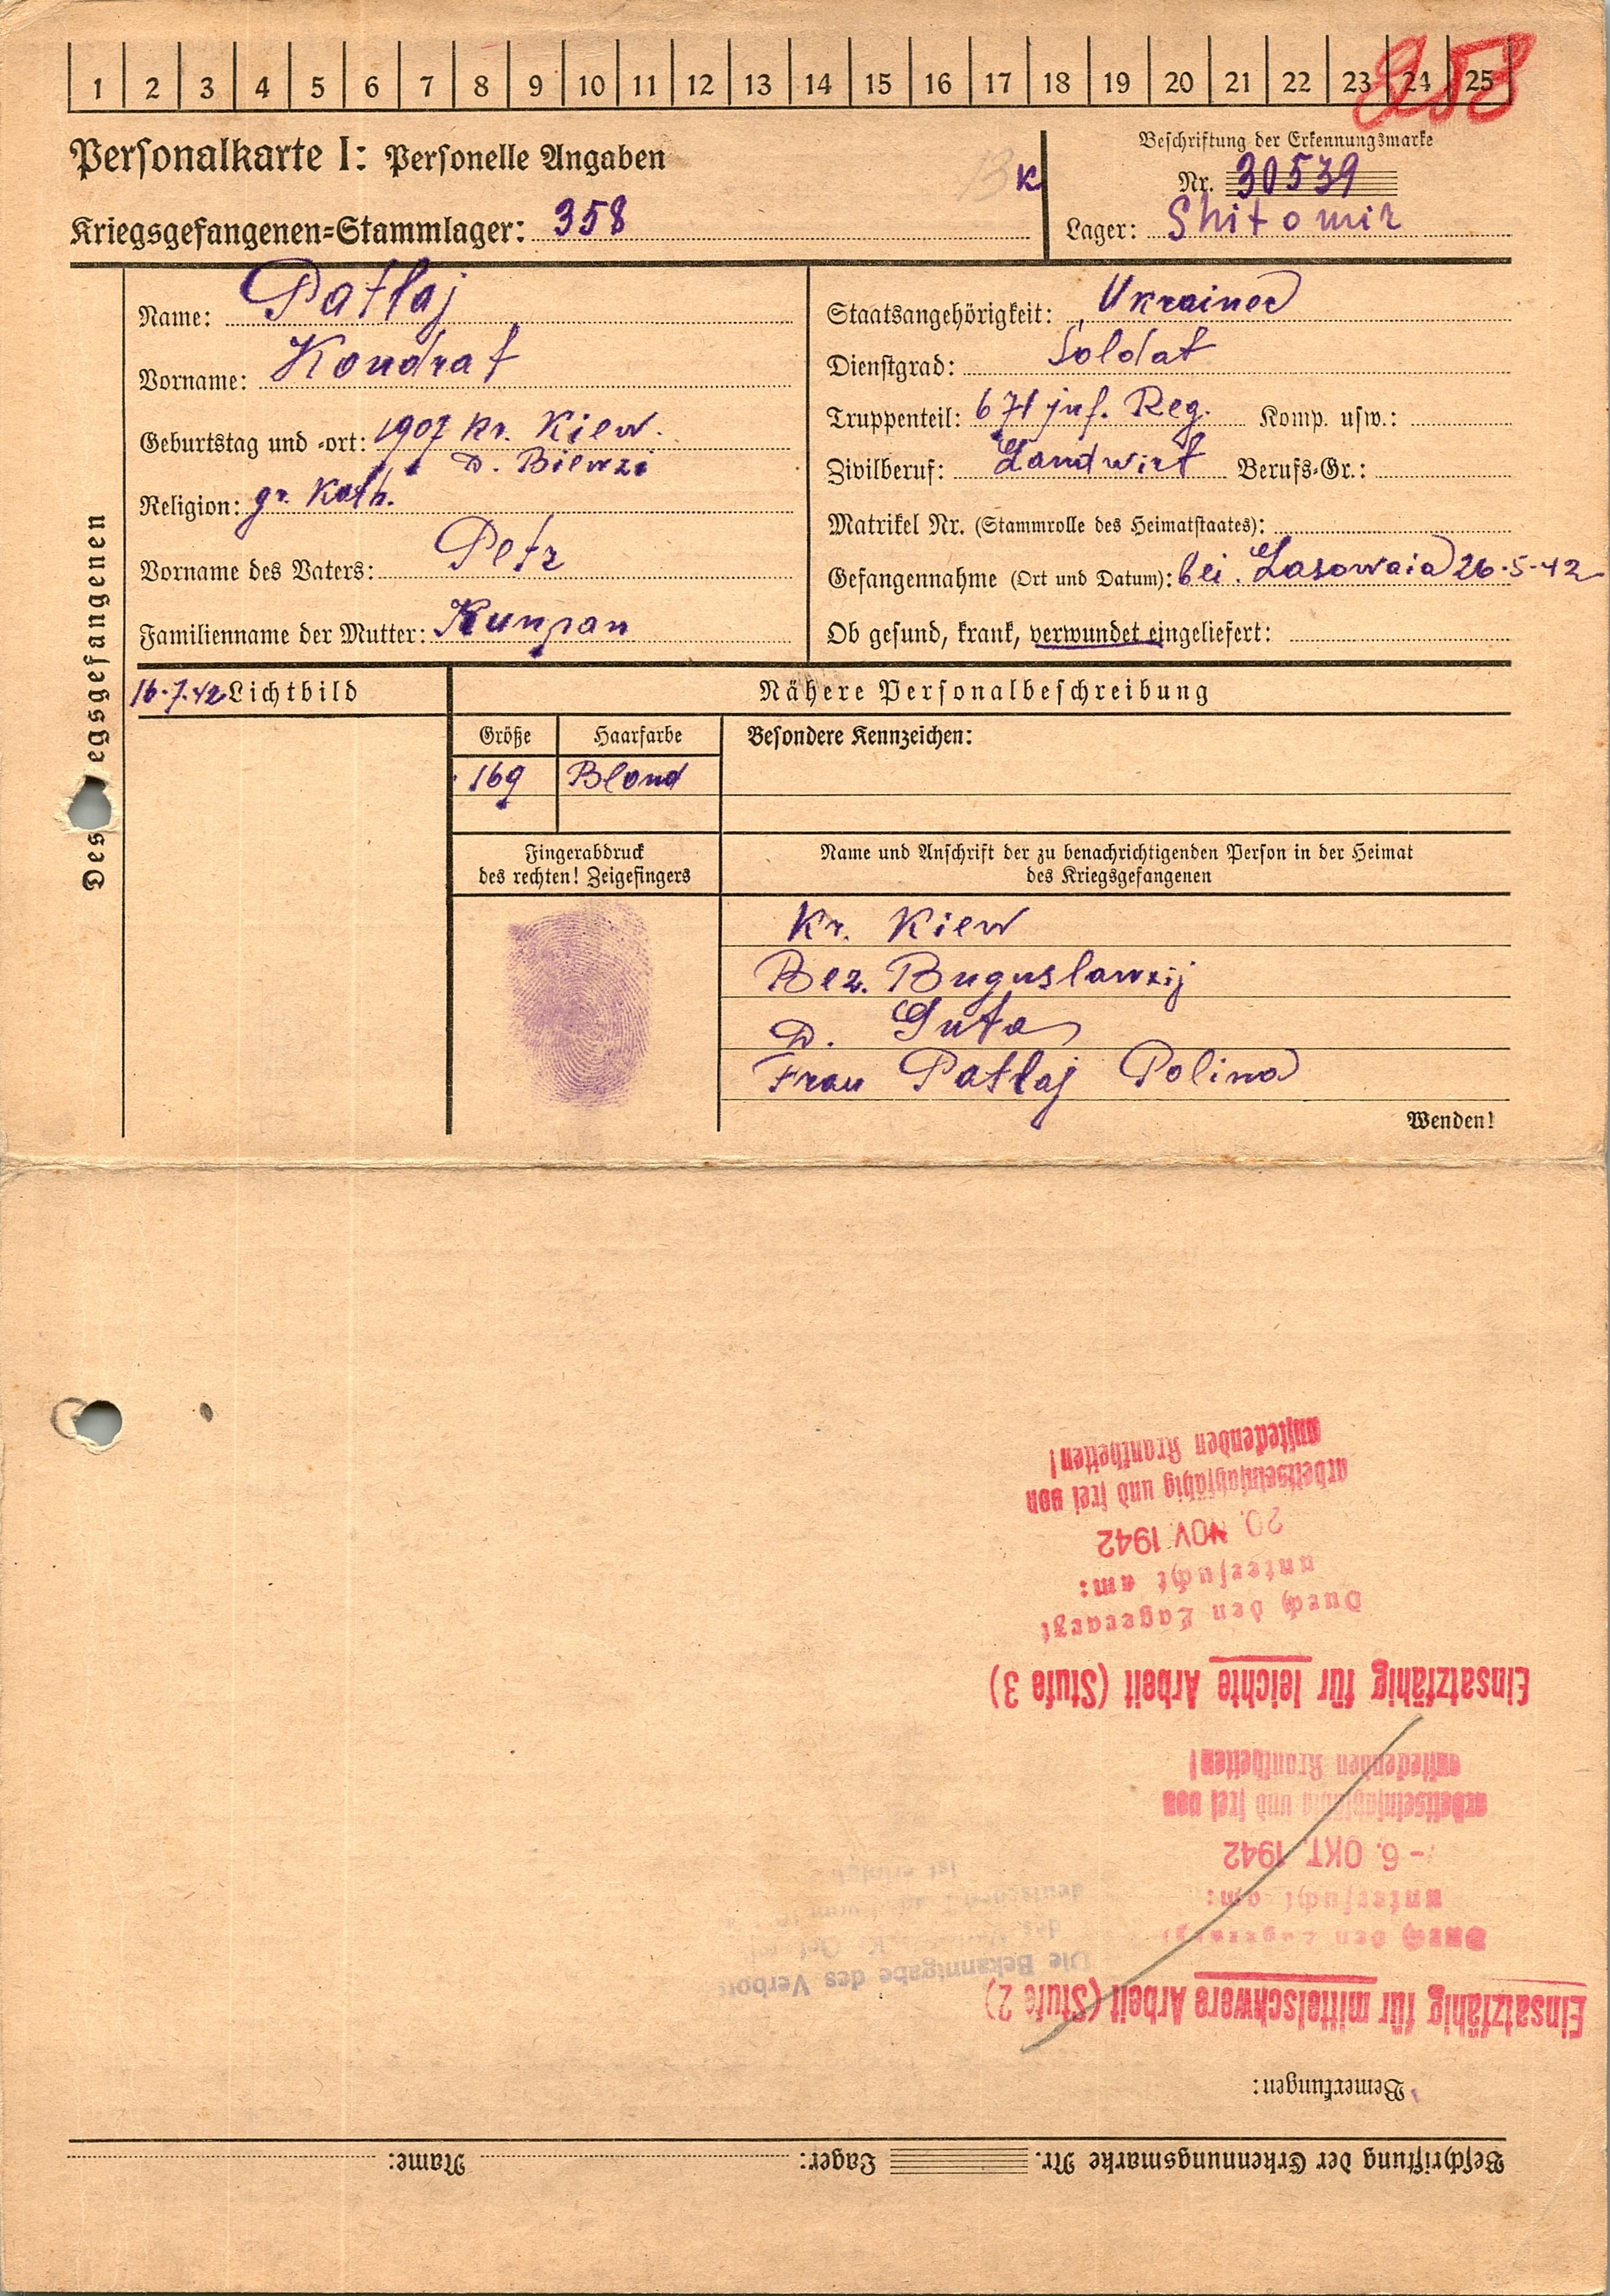 1 2 3 4 5 6 7 8 9 10 11 12 13 14 15 16 17 18 19 20 21 22 23 24 25
Personalkarte I: Personelle Angaben
K
Beschriftung der Erkennungsmarke
Nr. 30539
Kriegsgefangenen=Stammlager: 358
Lager: Shitomir
Des egsgefangenen
Name: Patlaj
Vorname: Kondrat
Geburtstag und =ort: 1907 Kr. Kiew.
D. Biewzi
Religion: gr. Kath.
Vorname des Vaters: Petr
Familienname der Mutter: Kunpan
Staatsangehörigkeit: Ukrainer
Dienstgrad: Soldat
Truppenteil: 671 inf. Reg. Komp. usw.:
Zivilberuf: Landwirt Berufs=Gr.:
Matrikel Nr. (Stammrolle des Heimatstaates):
Gefangennahme (Ort und Datum): bei. Lasowaia 26.5.42
Ob gesund, krank, verwundet eingeliefert:
16.7.42 Lichtbild
Nähere Personalbeschreibung
Größe Haarfarbe Besondere Kennzeichen:
169 Blond
Fingerabdruck
des rechten! Zeigefingers
Name und Anschrift der zu benachrichtigenden Person in der Heimat
des Kriegsgefangenen
Kr. Kiew
Bez. Buguslawzij
D. Guta
Frau Patlaj Polina
Wenden!
Beschriftung der Erkennungsmarke Nr. Lager: Name:
Bemerkungen:
Einsatzfähig für mittelschwere Arbeit (Stufe 2)
Durch den Lagerarzt
untersucht am:
- 6. OKT. 1942
arbeitseinsatzfähig und frei von
ansteckenden Krankheiten!
Die Bekanntgabe des Verbots
Einsatzfähig für leichte Arbeit (Stufe 3)
Durch den Lagerarzt
untersucht am:
20. NOV. 1942
arbeitseinsatzfähig und frei von
ansteckenden Krankheiten!